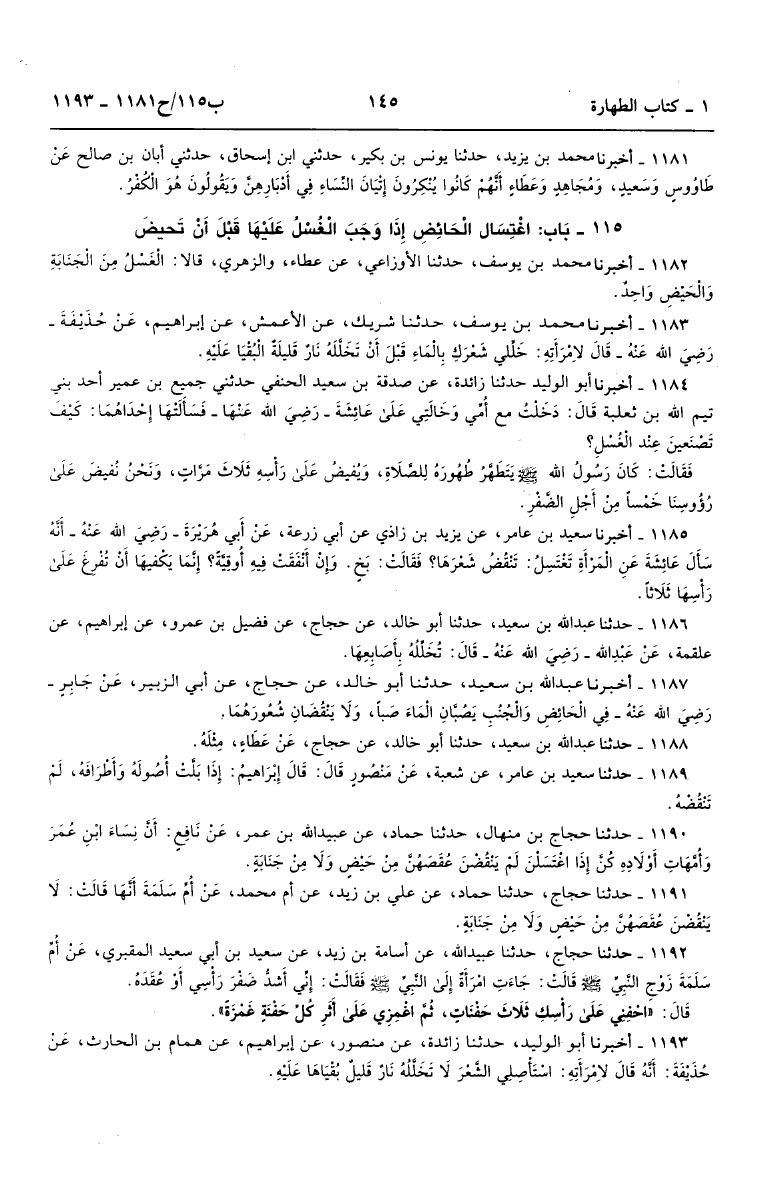 ١ ـ كتاب الطهارة ١٤٥ ب١١٥/ح١١٨١ ـ ١١٩٣
١١٨١ ـ أخبرنا محمد بن يزيد، حدثنا يونس بن بكير، حدثني ابن إسحاق، حدثني أبان بن صالح عَنْ
طَاوُوسٍ وَسَعيدٍ، وَمُجَاهِدٍ وَعَطَاءٍ أَنَّهُمْ كَانُوا يُنْكِرُونَ إِتْيَانَ النِّسَاءِ فِي أَدْبَارِهِنَّ وَيَقُولُونَ هُوَ الْكُفْرُ.
١١٥ ـ بَابُ: اغْتِسَالِ الْحَائِضِ إِذَا وَجَبَ الْغُسْلُ عَلَيْهَا قَبْلَ أَنْ تَحيضَ
١١٨٢ ـ أخبرنا محمد بن يوسف، حدثنا الأوزاعي، عن عطاء، والزهري، قالا: الْغَسْلُ مِنَ الْجَنَابَةِ
وَالْحَيْضِ وَاحِدٌ.
١١٨٣ ـ أخبرنا محمد بن يوسف، حدثنا شريك، عن الأعمش، عن إبراهيم، عَنْ حُذَيْفَةَ ـ
رَضِيَ الله عَنْهُ ـ قَالَ لامْرَأَتِهِ: خَلِّلي شَعْرَكِ بِالْمَاءِ قَبْلَ أَنْ تَخَلَّلَهُ نَارٌ قَليلَةُ الْبُقْيَا عَلَيْهِ.
١١٨٤ ـ أخبرنا أبو الوليد حدثنا زائدة، عن صدقة بن سعيد الحنفي حدثني جميع بن عمير أحد بني
تيم الله بن ثعلبة قَالَ: دَخَلْتُ مع أُمِّي وَخَالَتِي عَلَىٰ عَائِشَةَ ـ رَضِيَ الله عَنْهَا ـ فَسَأَلَتْهَا إِحْدَاهُمَا: كَيْفَ
تَصْنَعينَ عِنْدَ الْغُسْلِ؟
فَقَالَتْ: كَانَ رَسُولُ الله ﷺ يَتَطَهَّرُ طُهُورَهُ لِلصَّلَاةِ، وَيُفيضُ عَلَىٰ رَأْسِهِ ثَلَاثَ مَرَّاتٍ، وَنَحْنُ نُفيضُ عَلَىٰ
رُؤُوسِنَا خَمْساً مِنْ أَجْلِ الضَّفْرِ.
١١٨٥ ـ أخبرنا سعيد بن عامر، عن يزيد بن زاذي عن أبي زرعة، عَنْ أَبي هُرَيْرَةَ ـ رَضِيَ الله عَنْهُ ـ أَنَّهُ
سَأَلَ عَائِشَةَ عَنِ الْمَرْأَةِ تَغْتَسِلُ: تَنْقُضُ شَعْرَهَا؟ فَقَالَتْ: بَخٍ. وَإِنْ أَنْفَقَتْ فِيهِ أُوقِيَّةً؟ إِنَّمَا يَكْفيهَا أَنْ تُفْرِغَ عَلَىٰ
رَأْسِهَا ثَلَاثاً.
١١٨٦ ـ حدثنا عبدالله بن سعيد، حدثنا أبو خالد، عن حجاج، عن فضيل بن عمرو، عن إبراهيم، عن
علقمة، عَنْ عَبْدِالله ـ رَضِيَ الله عَنْهُ ـ قَالَ: تُخَلِّلُهُ بِأَصَابِعِهَا.
١١٨٧ ـ أخبرنا عبدالله بن سعيد، حدثنا أبو خالد، عن حجاج، عن أبي الزبير، عَنْ جَابِرٍ ـ
رَضِيَ الله عَنْهُ ـ فِي الْحَائِضِ وَالْجُنُبِ يَصُبَّانِ الْمَاءَ صَباً، وَلَا يَنْقُضَانِ شُعُورَهُمَا.
١١٨٨ ـ حدثنا عبدالله بن سعيد، حدثنا أبو خالد، عن حجاج، عَنْ عَطَاءٍ، مِثْلَهُ.
١١٨٩ ـ حدثنا سعيد بن عامر، عن شعبة، عَنْ مَنْصُورٍ قَالَ: قَالَ إِبْرَاهِيمُ: إِذَا بَلَّتْ أُصُولَهُ وَأَطْرَافَهُ، لَمْ
تَنْقُضْهُ.
١١٩٠ ـ حدثنا حجاج بن منهال، حدثنا حماد، عن عبيدالله بن عمر، عَنْ نَافِعٍ: أَنَّ نِسَاءَ ابْنِ عُمَرَ
وَأُمَّهَاتِ أَوْلَادِهِ كُنَّ إِذَا اغْتَسَلْنَ لَمْ يَنْقُضْنَ عُقَصَهُنَّ مِنْ حَيْضٍ وَلَا مِنْ جَنَابَةٍ.
١١٩١ ـ حدثنا حجاج، حدثنا حماد، عن علي بن زيد، عن أم محمد، عَنْ أُمِّ سَلَمَةَ أَنَّهَا قَالَتْ: لَا
يَنْقُضْنَ عُقَصَهُنَّ مِنْ حَيْضٍ وَلَا مِنْ جَنَابَةٍ.
١١٩٢ ـ حدثنا حجاج، حدثنا عبيدالله، عن أسامة بن زيد، عن سعيد بن أبي سعيد المقبري، عَنْ أُمِّ
سَلَمَةَ زَوْجِ النَّبِيِّ ﷺ قَالَتْ: جَاءَتِ امْرَأَةٌ إِلَىٰ النَّبِيِّ ﷺ فَقَالَتْ: إِنِّي أَشدُّ ضَفْرَ رَأْسي أَوْ عُقَدَهُ.
قَالَ: «احْفِني عَلَىٰ رَأْسِكِ ثَلَاثَ حَفْنَاتٍ، ثُمَّ اغْمِزي عَلَىٰ أَثَرِ كُلِّ حَفْنَةٍ غَمْزَةً».
١١٩٣ ـ أخبرنا أبو الوليد، حدثنا زائدة، عن منصور، عن إبراهيم، عن همام بن الحارث، عَنْ
حُذَيْفَةَ: أَنَّهُ قَالَ لامْرَأَتِهِ: اسْتَأْصِلي الشَّعْرَ لَا تَخَلَّلُهُ نَارٌ قَليلٌ بُقْيَاهَا عَلَيْهِ.